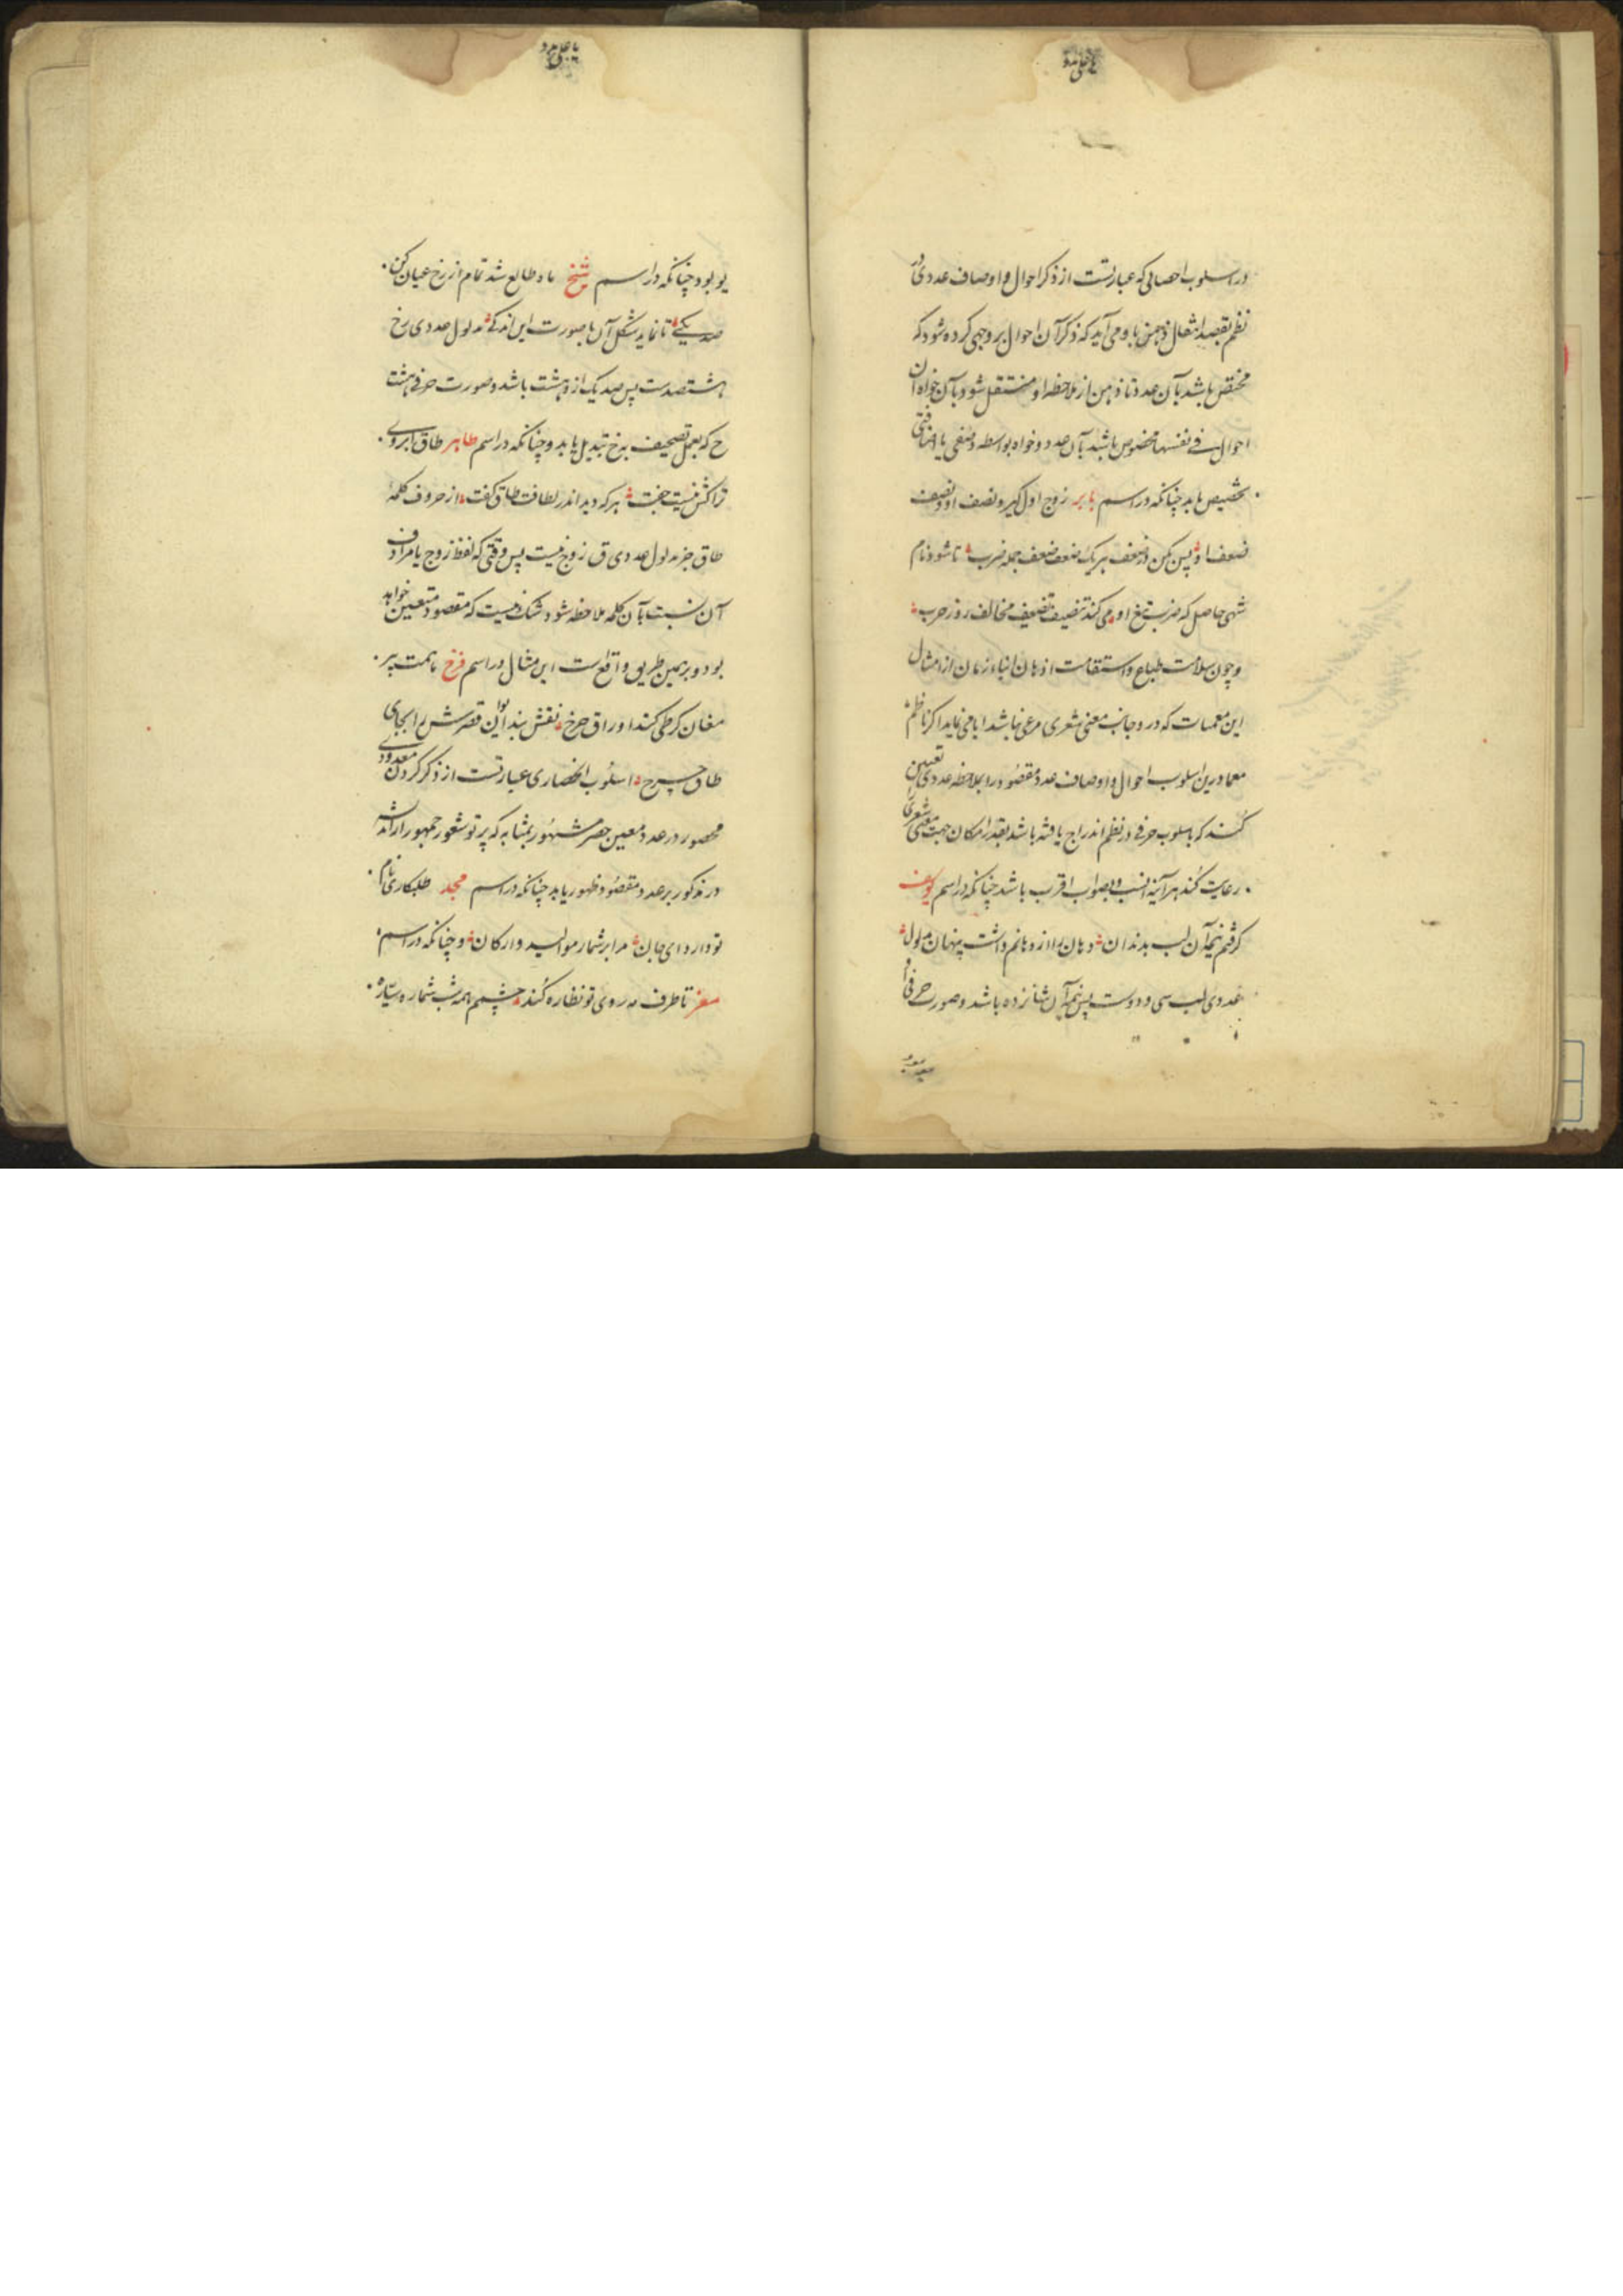 در اسلوب احصائی که عبارتست از ذکر احوال و اوصاف عددی در
نظم بقصد انتقال ذهن باو می آید که ذکر آن احوال بر وجهی کرده شود که
مختص باشد بآن عدد تا ذهن از ملاحظه او منتقل شود بآن خواه آن
احوال فی نفسها مخصوص باشد بآن عدد و خواه بواسطه وصفی یا اضافتی
تخصیص یابد چنانکه در اسم بابر زوج اول گیر و نصف او و نصف
ضعف او پس کن ضعف هر یک ضعف ضعف جمله ضرب تا شود نام
شهی حاصل که ضرب تیغ او می کند تنصیف تضعیف مخالف روز حرب
و چون سلامت طباع و استقامت اذهان ابناء زمان از امثال
این معمیات که در و جانب معنی شعری مرعی نباشد ابا می نماید اگر ناظم
معما درین اسلوب احوال و اوصاف عدد مقصود را بملاحظه عددی تعیین
کند که باسلوب حرفی در نظم اندراج یافته باشد بقدر امکان جهت معنی شعری را
رعایت کند هر آینه انسب و بصواب اقرب باشد چنانکه در اسم یوسف
گرفتم نیم آن لب بدندان دهان را از دهانم داشت پنهان مدلول
عددی لب سی و دوست پس نیم آن شانزده باشد و صورت حرفی او
یو بود چنانکه در اسم شیخ ماه طالع شد تمام از رخ عیان کن
صد یکی تا نماید شکل آن با صورت این اندکی مدلول عددی رخ
هشتصدست پس صد یک ازو هشت باشد و صورت حرفی هشت
ح که بعمل تصحیف به خ تبدیل یابد و چنانکه در اسم طاهر طاق ابروی
تراکش نیست جفت هر که دید اندر لطافت طاق گفت از حروف کلمه
طاق جز مدلول عددی ق زوج نیست پس وقتی که لفظ زوج یا مرادف
آن نسبت بآن کلمه ملاحظه شود شک نیست که مقصود متعین خواهد
بود و برهمین طریق واقع است این مثال در اسم فرخ با همت پیر
مغان گر طی کند اوراق چرخ نقش بند ایوان قصرش را بجای
طاق چرخ اسلوب انحصاری عبارتست از ذکر کردن معدودی
محصور در عدد معین حصر مشهور بمثابه که پرتو شعور جمهور را از آنه
در مذکور بر عدد مقصود ظهور یابد چنانکه در اسم مجد طلبکاری نام
تو دارد ای جان مرا بر شمار موالید و ارکان و چنانکه در اسم
معز تا طرف مه روی تو نظاره کند چشمم همه شب شماره سیاره